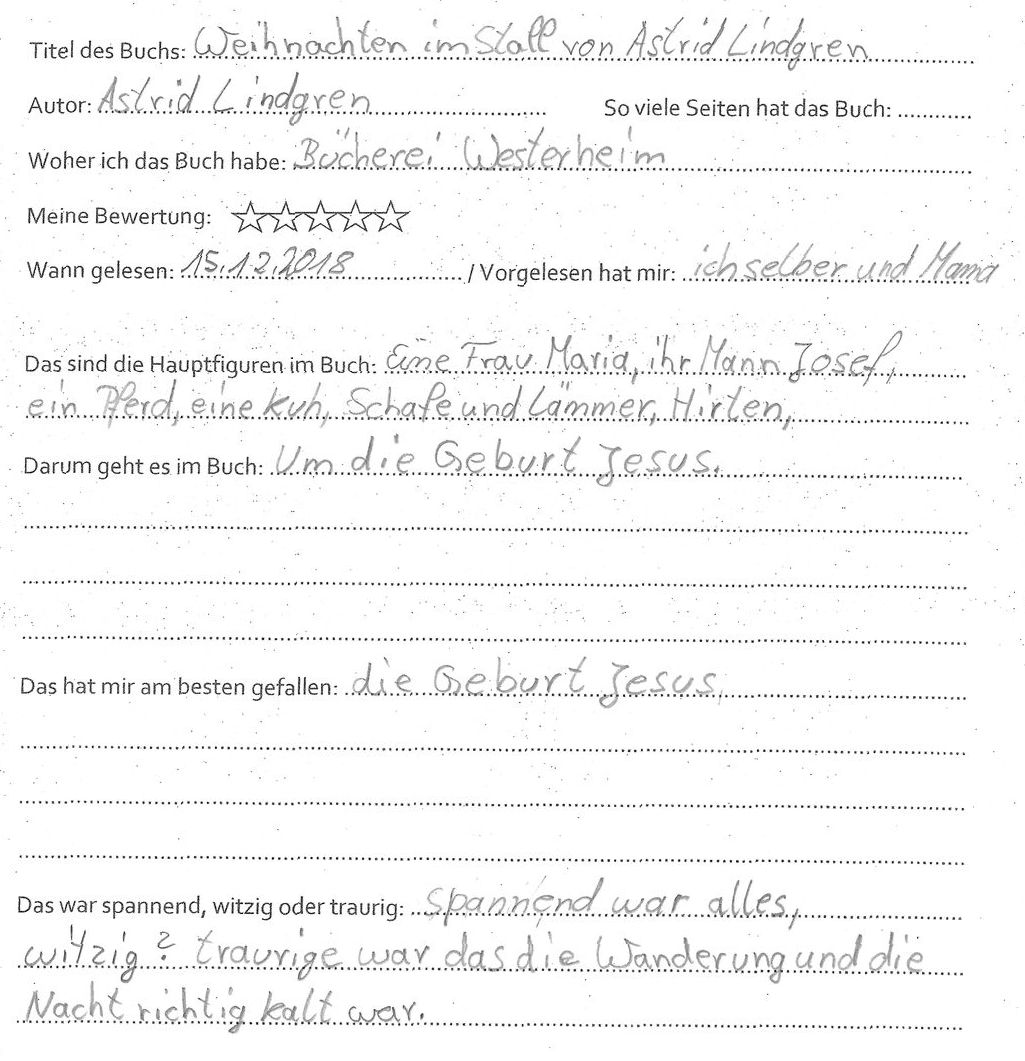 Titel des Buchs: Weihnachten im Stall von Astrid Lindgren
Autor: Astrid Lindgren So viele Seiten hat das Buch:
Woher ich das Buch habe: Bücherei Westerheim
Meine Bewertung:
Wann gelesen: 15.12.2018 / Vorgelesen hat mir: ich selber und Mama
Das sind die Hauptfiguren im Buch: Eine Frau Maria, ihr Mann Josef,
ein Pferd, eine Kuh, Schafe und Lämmer, Hirten,
Darum geht es im Buch: Um die Geburt Jesus.
Das hat mir am besten gefallen: die Geburt Jesus,
Das war spannend, witzig oder traurig: spannend war alles,
witzig? traurige war das die Wanderung und die
Nacht richtig kalt war.